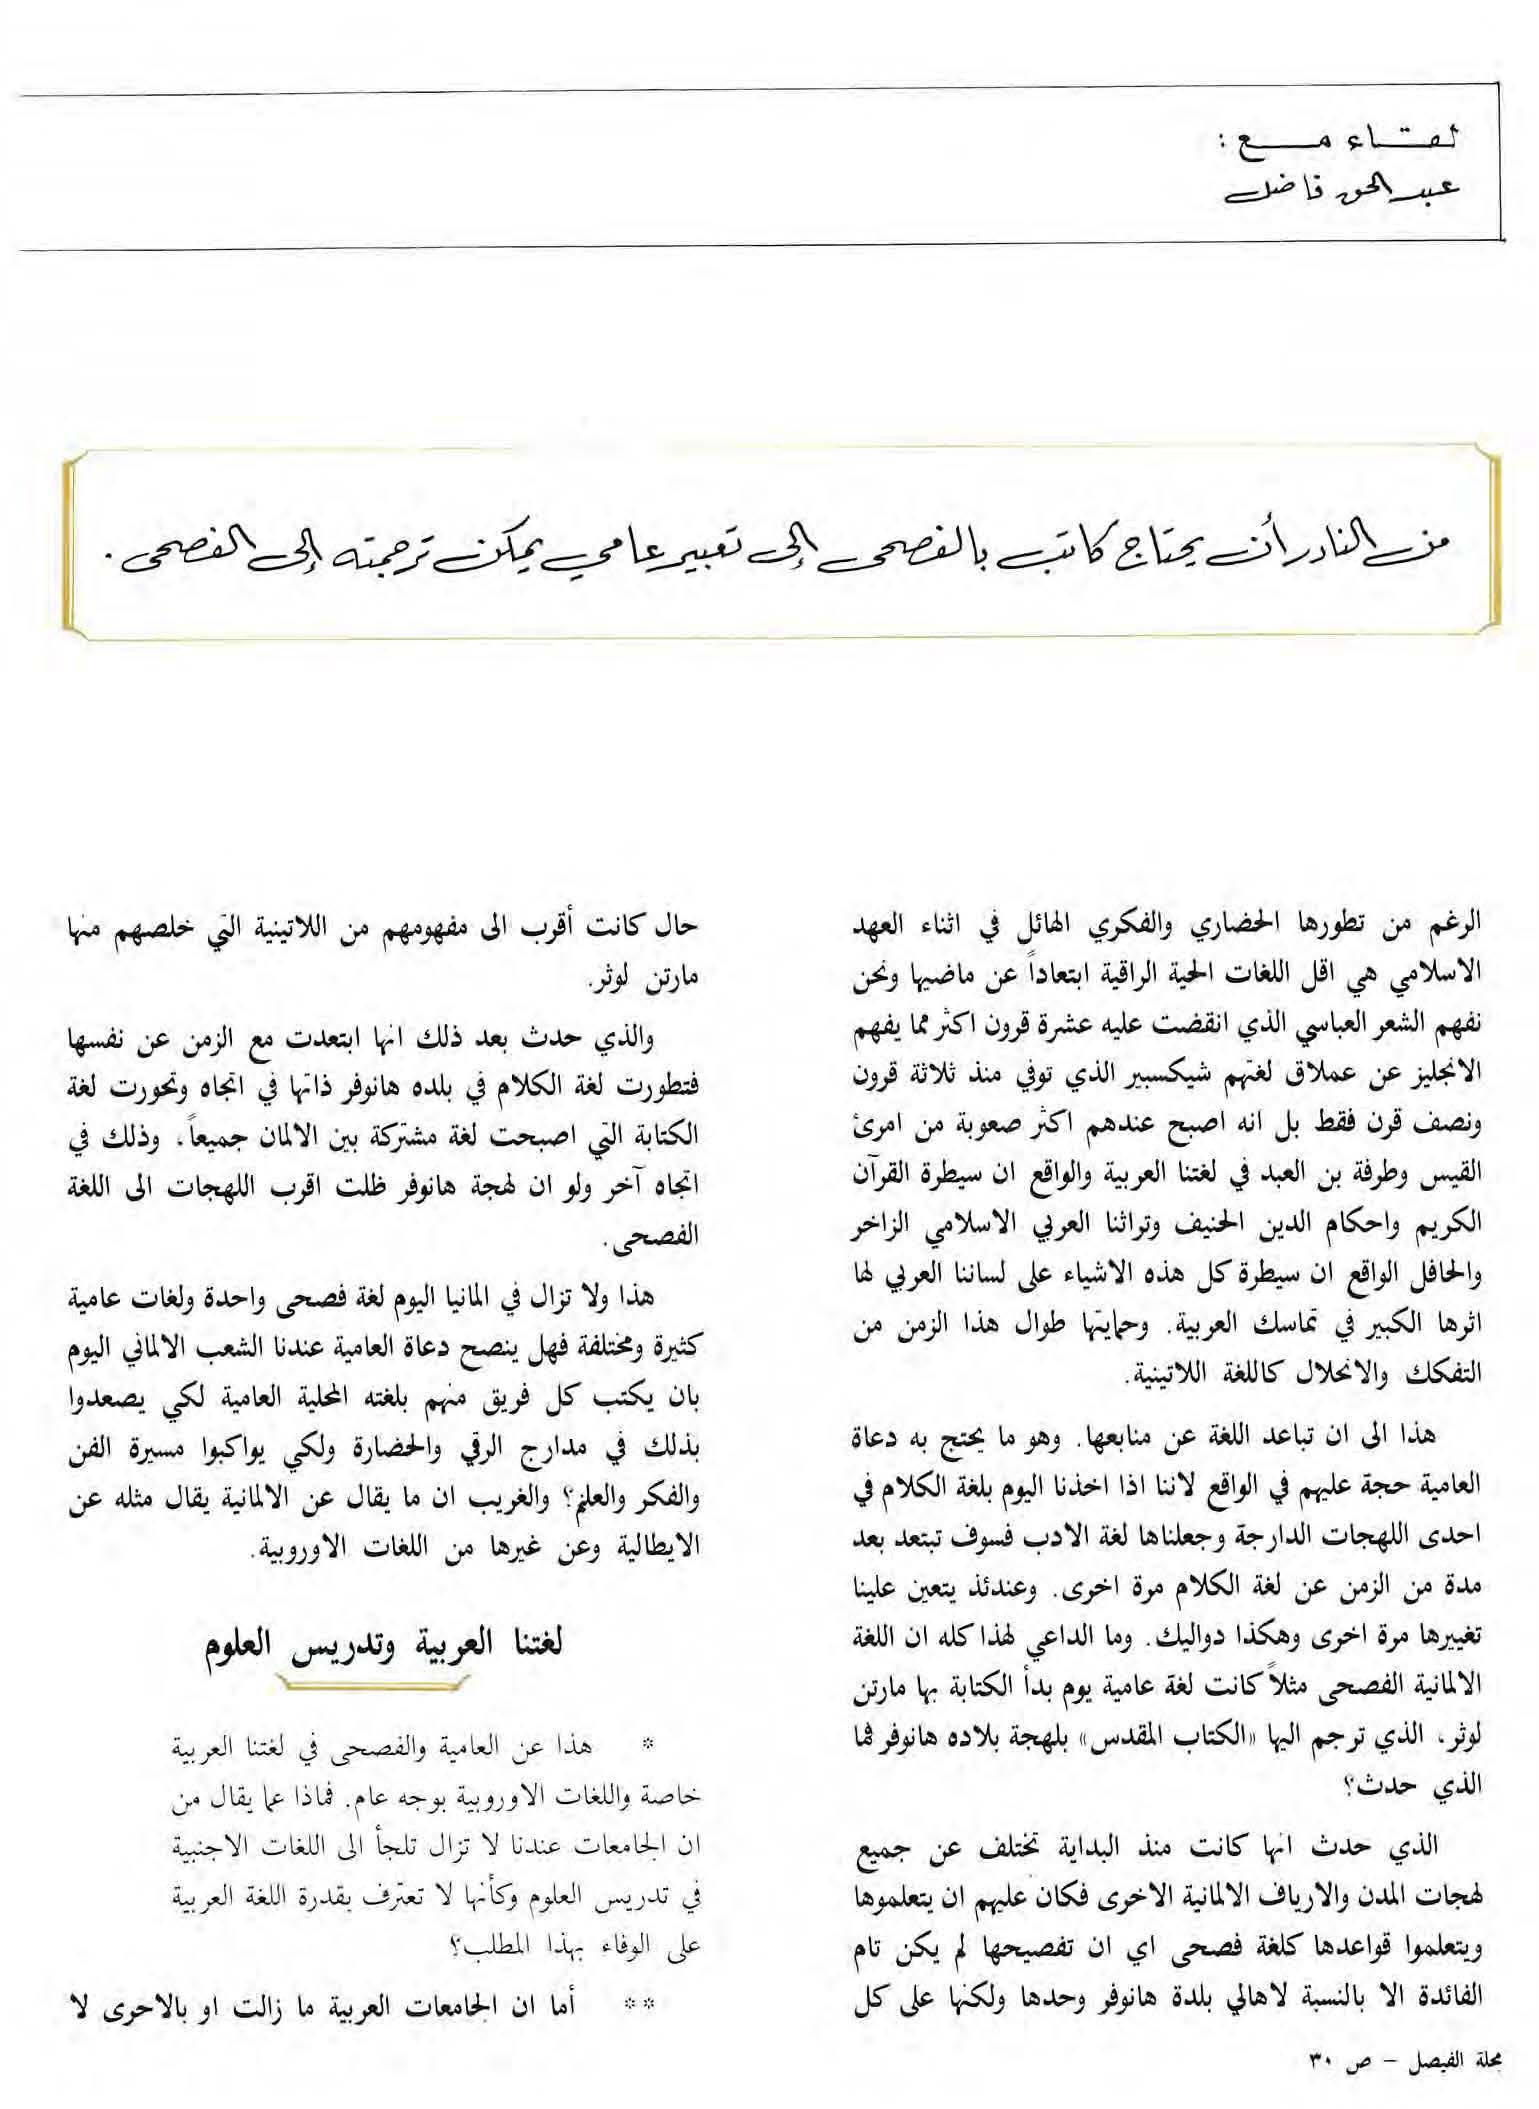 لقاء مع :
عبد الحق فاضل
من النادر أن يحتاج كاتب بالفصحى إلى تعبير عامي يمكن ترجمته إلى الفصحى .
الرغم من تطورها الحضاري والفكري الهائل في اثناء العهد
الاسلامي هي اقل اللغات الحية الراقية ابتعاداً عن ماضيها ونحن
نفهم الشعر العباسي الذي انقضت عليه عشرة قرون اكثر مما يفهم
الانجليز عن عملاق لغتهم شيكسبير الذي توفي منذ ثلاثة قرون
ونصف قرن فقط بل انه اصبح عندهم اكثر صعوبة من امرئ
القيس وطرفة بن العبد في لغتنا العربية والواقع ان سيطرة القرآن
الكريم واحكام الدين الحنيف وتراثنا العربي الاسلامي الزاخر
والحافل الواقع ان سيطرة كل هذه الاشياء على لساننا العربي لها
اثرها الكبير في تماسك العربية. وحمايتها طوال هذا الزمن من
التفكك والانحلال كاللغة اللاتينية.
هذا الى ان تباعد اللغة عن منابعها. وهو ما يحتج به دعاة
العامية حجة عليهم في الواقع لاننا اذا اخذنا اليوم بلغة الكلام في
احدى اللهجات الدارجة وجعلناها لغة الادب فسوف تبتعد بعد
مدة من الزمن عن لغة الكلام مرة اخرى. وعندئذ يتعين علينا
تغييرها مرة اخرى وهكذا دواليك. وما الداعي لهذا كله ان اللغة
الالمانية الفصحى مثلاً كانت لغة عامية يوم بدأ الكتابة بها مارتن
لوثر، الذي ترجم اليها «الكتاب المقدس» بلهجة بلاده هانوفر فما
الذي حدث؟
الذي حدث انها كانت منذ البداية تختلف عن جميع
لهجات المدن والارياف الالمانية الاخرى فكان عليهم ان يتعلموها
ويتعلموا قواعدها كلغة فصحى اي ان تفصيحها لم يكن تام
الفائدة الا بالنسبة لاهالي بلدة هانوفر وحدها ولكنها على كل
حال كانت أقرب الى مفهومهم من اللاتينية التي خلصهم منها
مارتن لوثر.
والذي حدث بعد ذلك انها ابتعدت مع الزمن عن نفسها
فتطورت لغة الكلام في بلده هانوفر ذاتها في اتجاه وتحورت لغة
الكتابة التي اصبحت لغة مشتركة بين الالمان جميعاً، وذلك في
اتجاه آخر ولو ان لهجة هانوفر ظلت اقرب اللهجات الى اللغة
الفصحى.
هذا ولا تزال في المانيا اليوم لغة فصحى واحدة ولغات عامية
كثيرة ومختلفة فهل ينصح دعاة العامية عندنا الشعب الالماني اليوم
بان يكتب كل فريق منهم بلغته المحلية العامية لكي يصعدوا
بذلك في مدارج الرقي والحضارة ولكي يواكبوا مسيرة الفن
والفكر والعلم؟ والغريب ان ما يقال عن الالمانية يقال مثله عن
الايطالية وعن غيرها من اللغات الاوروبية.
لغتنا العربية وتدريس العلوم
* هذا عن العامية والفصحى في لغتنا العربية
خاصة واللغات الاوروبية بوجه عام. فماذا عما يقال من
ان الجامعات عندنا لا تزال تلجأ الى اللغات الاجنبية
في تدريس العلوم وكأنها لا تعترف بقدرة اللغة العربية
على الوفاء بهذا المطلب؟
** أما ان الجامعات العربية ما زالت او بالاحرى لا
مجلة الفيصل – ص ٣٠